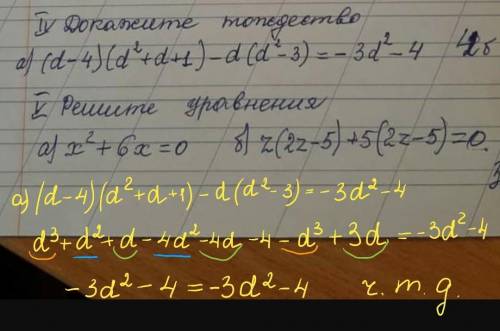 IV Докажите тождество
а) (d-4)(d²+d+1)-d(d²-3)=-3d²-4
V Решите уравнения
а) x²+6x=0 б) z(2z-5)+5(2z-5)=0.
а) (d-4)(d²+d+1)-d(d²-3)=-3d²-4
d³+d²+d-4d²-4d-4-d³+3d=-3d²-4
-3d²-4=-3d²-4 ч.т.д.